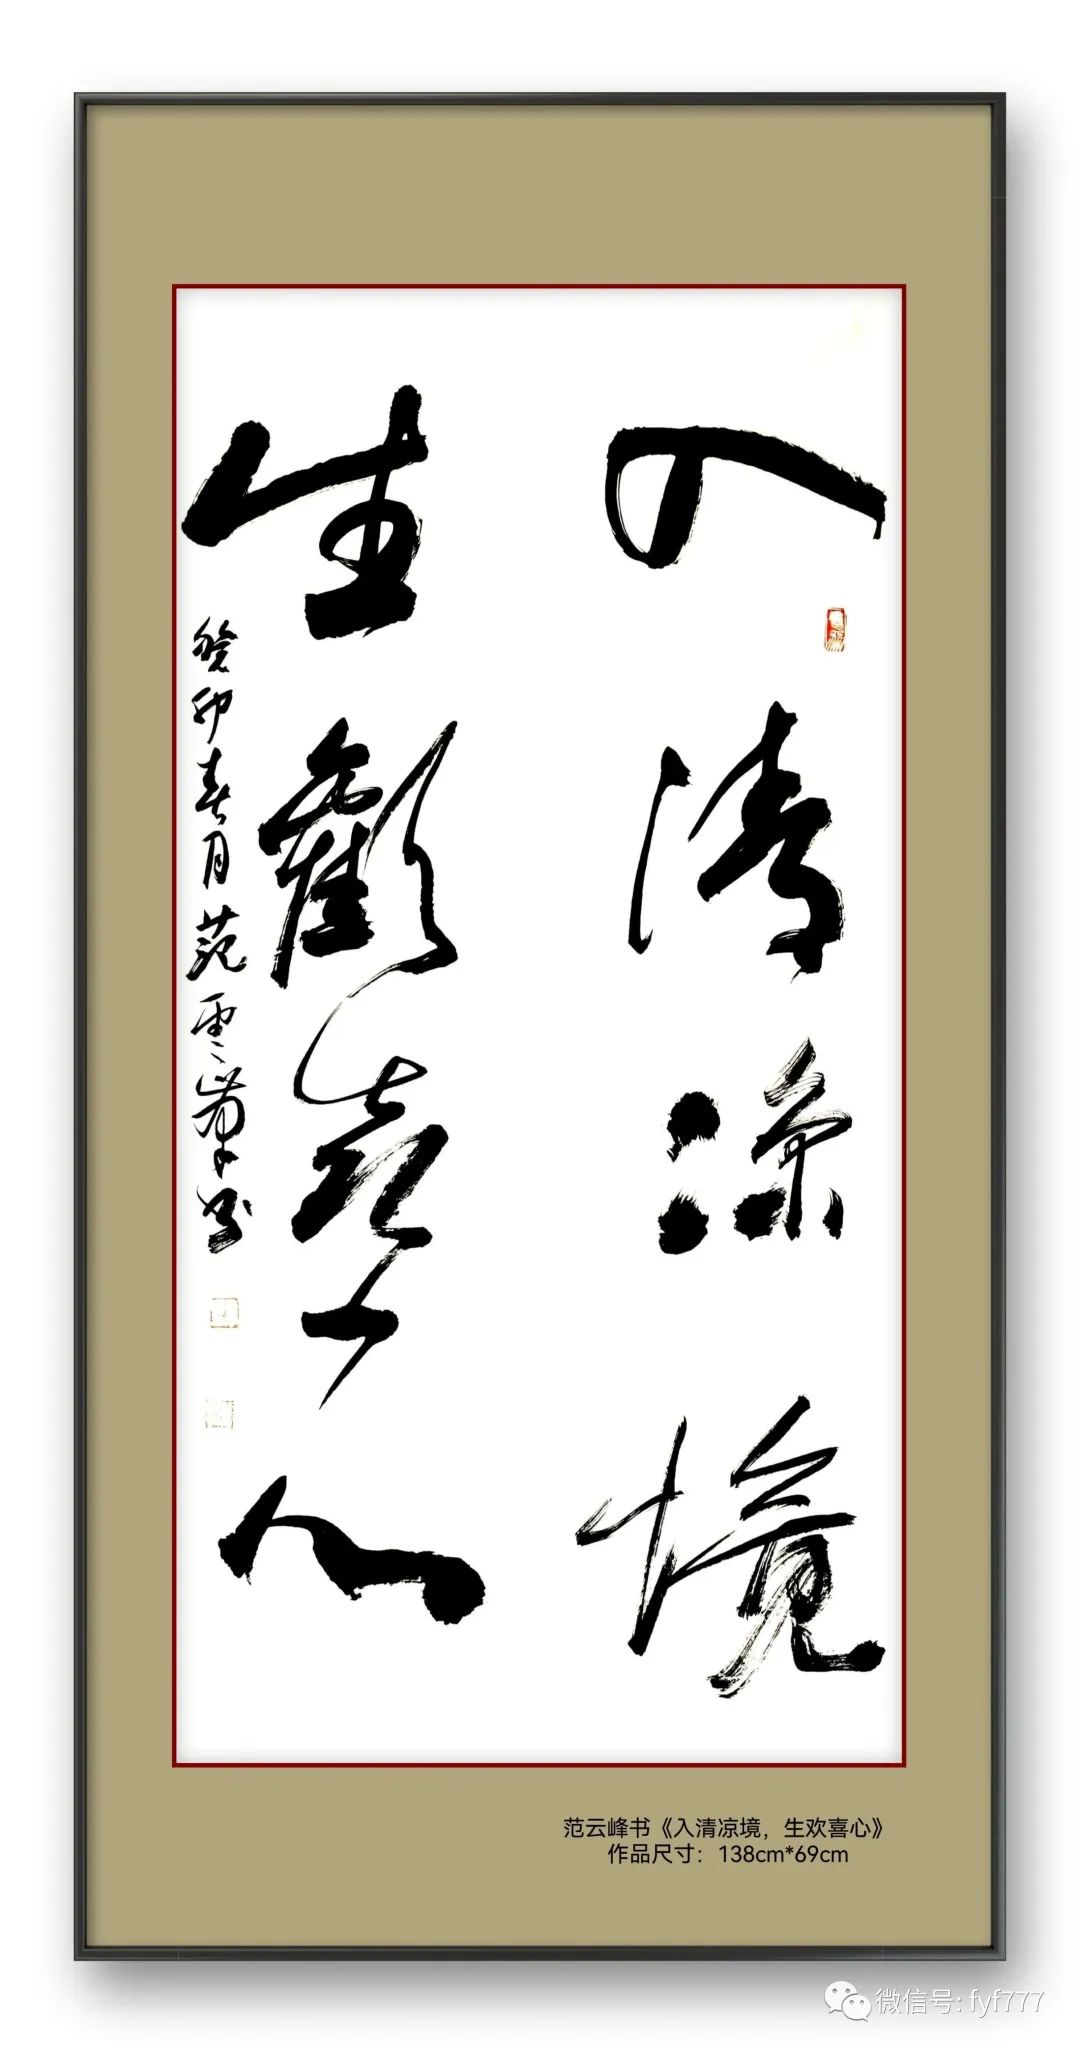 入清凉境
生歡喜心
癸卯春月范雲峯书
范云峰书《入清凉境，生欢喜心》
作品尺寸：138cm*69cm
微信号: fyf777